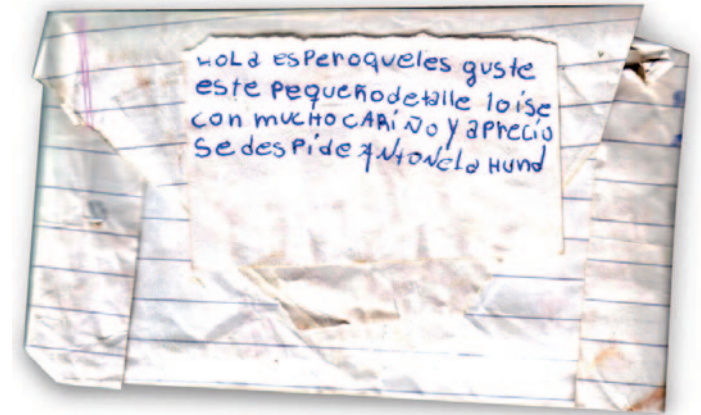 HOLa esperoqueles guste
este pequeñodetalle loise
con mucHocARiÑo y aprecio
se despide ANtONela Hund